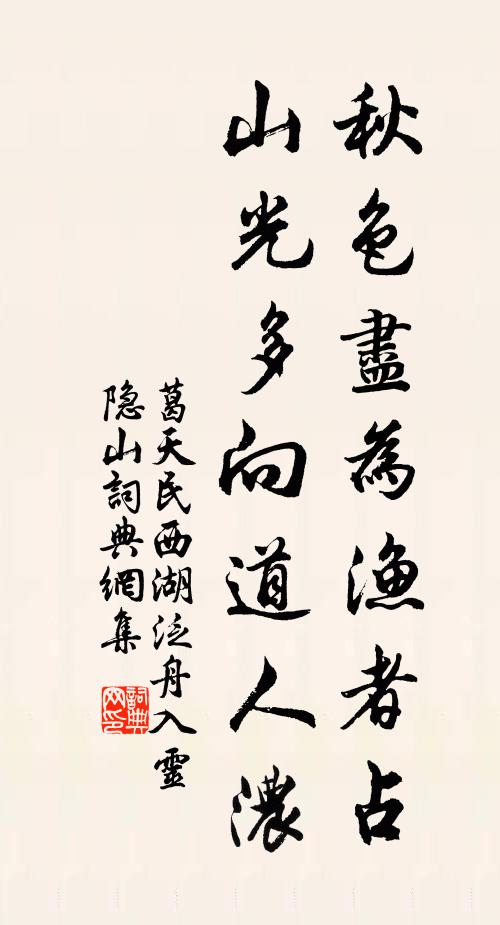 秋色盡為漁者占
山光多向道人濃
葛天民西湖泛舟入靈
隐山詞典網集
詞典网印